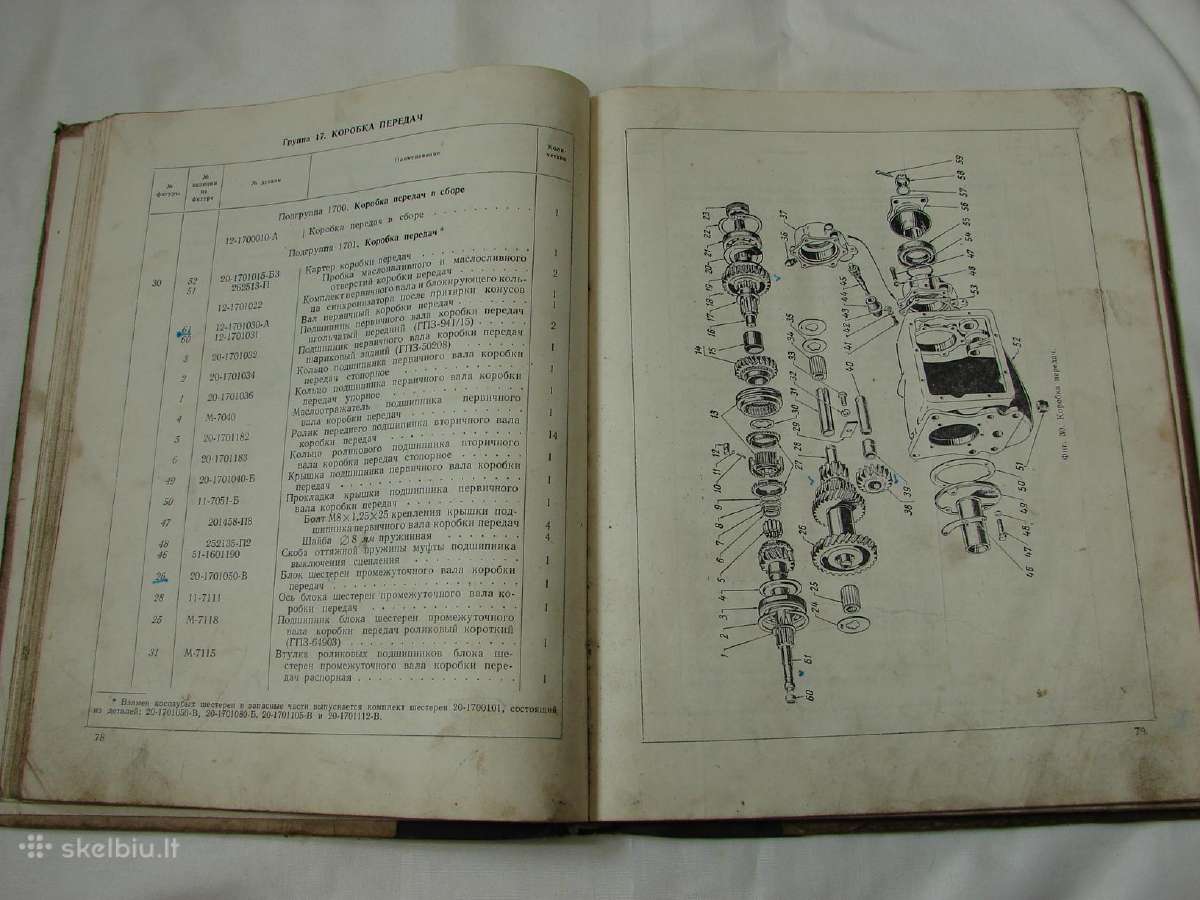 Группа 17. КОРОБКА ПЕРЕДАЧ
№ фигуры № позиции на фигуре № детали Наименование Коли-чество
Подгруппа 1700. Коробка передач в сборе
12-1700010-А Коробка передач в сборе 1
Подгруппа 1701. Коробка передач*
30 52 20-1701015-Б3 Картер коробки передач 1
51 262513-П Пробка маслоналивного и маслосливного
отверстий коробки передач 2
12-1701022 Комплект первичного вала и блокирующего коль-
ца синхронизатора после притирки конусов 1
61 12-1701030-А Вал первичный коробки передач 1
60 12-1701031 Подшипник первичного вала коробки передач
игольчатый передний (ГПЗ-941/15) 2
3 20-1701032 Подшипник первичного вала коробки передач
шариковый задний (ГПЗ-50208) 1
2 20-1701034 Кольцо подшипника первичного вала коробки
передач стопорное 1
1 20-1701036 Кольцо подшипника первичного вала коробки
передач упорное 1
4 М-7040 Маслоотражатель подшипника первичного
вала коробки передач 1
5 20-1701182 Ролик переднего подшипника вторичного вала
коробки передач 14
6 20-1701183 Кольцо роликового подшипника вторичного
вала коробки передач стопорное 1
49 20-1701040-Б Крышка подшипника первичного вала коробки
передач 1
50 11-7051-Б Прокладка крышки подшипника первичного
вала коробки передач 1
47 201458-П8 Болт М8×1,25×25 крепления крышки под-
шипника первичного вала коробки передач 4
48 252135-П2 Шайба ∅ 8 мм пружинная 4
46 51-1601190 Скоба оттяжной пружины муфты подшипника
выключения сцепления 1
26 20-1701050-В Блок шестерен промежуточного вала коробки
передач 1
28 11-7111 Ось блока шестерен промежуточного вала ко-
робки передач 1
25 М-7118 Подшипник блока шестерен промежуточного
вала коробки передач роликовый короткий
(ГПЗ-64903) 1
31 М-7115 Втулка роликовых подшипников блока ше-
стерен промежуточного вала коробки пере-
дач распорная 1
* Взамен косозубых шестерен в запасные части выпускается комплект шестерен 20-1700101, состоящий
из деталей: 20-1701050-В, 20-1701080-Б, 20-1701105-В и 20-1701112-В.
78
1 2 3 4 5 6 7 8 9 10 11 12 13 14 15 16 17 18 19 20 21 22 23
24 25 26 27 28 29 30 31 32 33 34 35 36 37
38 39 40 41 42 43 44 45
46 47 48 49 50 51 52 53 48 47 54 55 56 57 58 59
60 61
Фиг. 30. Коробка передач.
79
skelbiu.lt